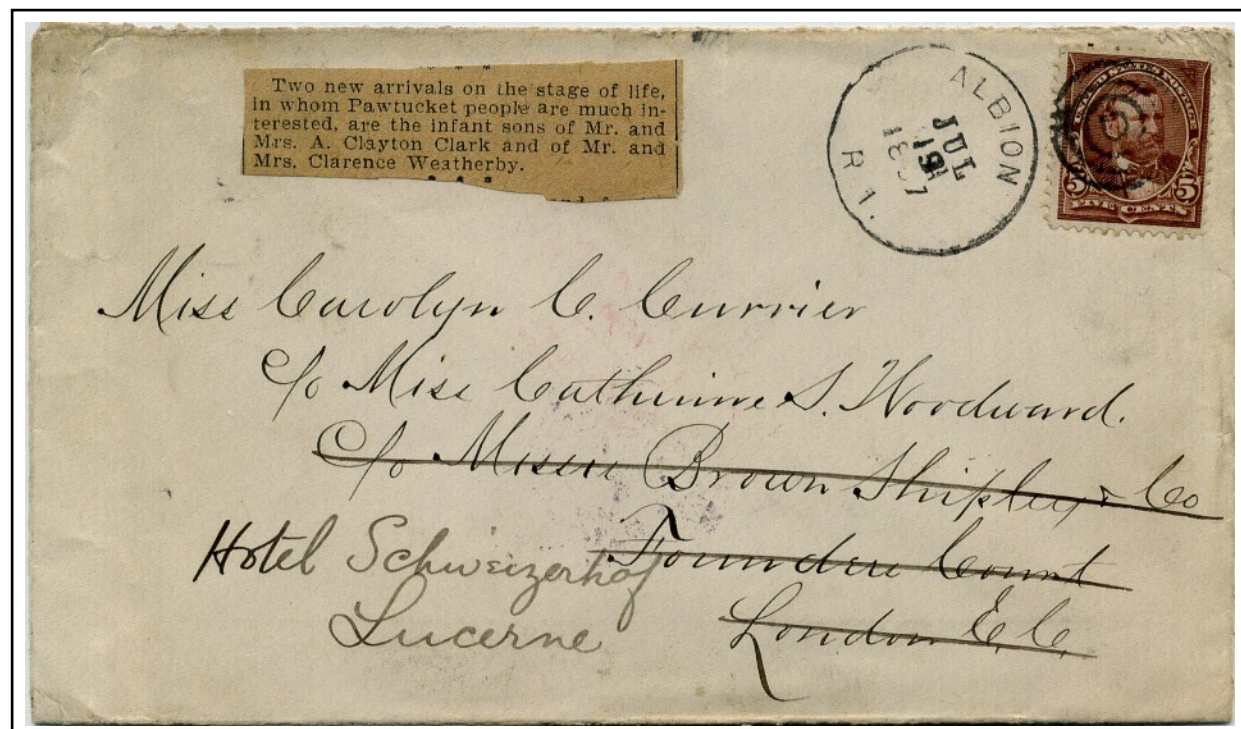 Two new arrivals on the stage of life,
in whom Pawtucket people are much in-
terested, are the infant sons of Mr. and
Mrs. A. Clayton Clark and of Mr. and
Mrs. Clarence Weatherby.
ALBION
JUL
19
R.I.
UNITED STATES POSTAGE
5 5
FIVE CENTS
Miss Carolyn C. Currier
c/o Miss Catherine S. Woodward.
c/o Messrs Brown Shipley & Co
Founders Court
London E.C.
Hotel Schweizerhof
Lucerne